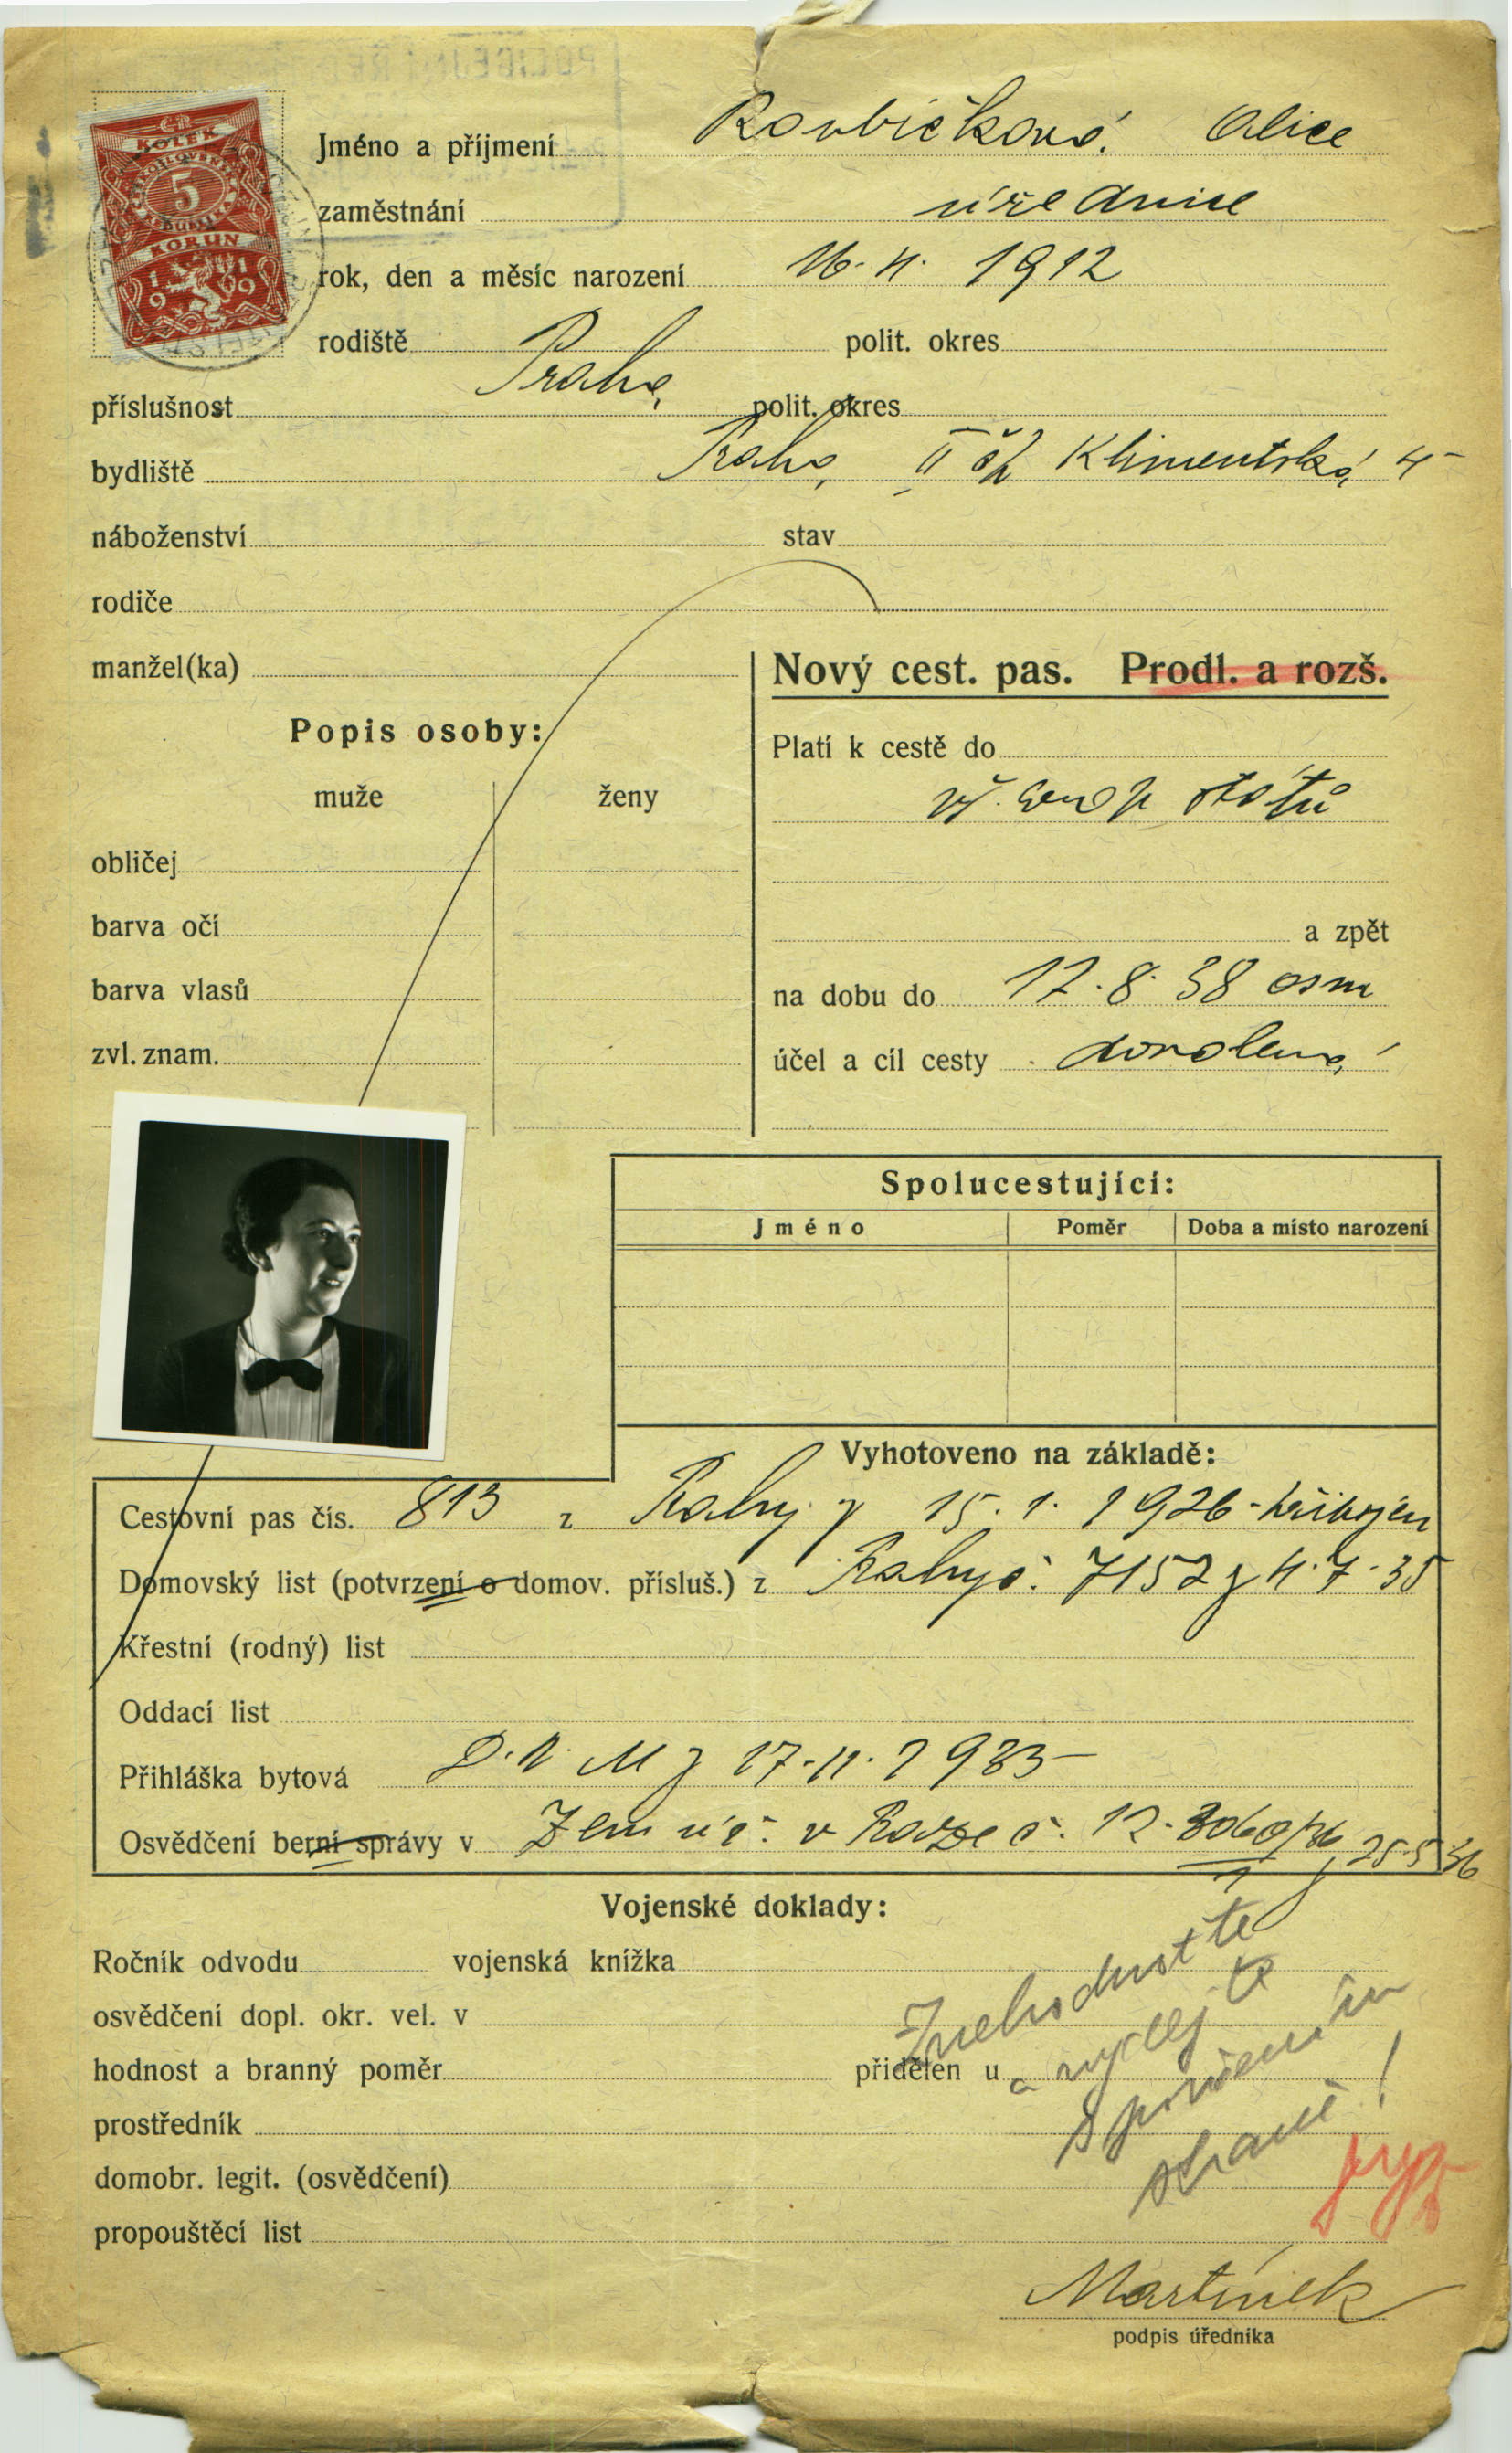 POLICEJNÍ ŘED
ČR
KOLEK
ČESKOSLOVENSKÁ
5
REPUBLIKA
KORUN
1919
Jméno a příjmení Roubíčková Alice
zaměstnání úřednice
rok, den a měsíc narození 16. 4. 1912
rodiště Praha polit. okres
příslušnost polit. okres
bydliště Praha, II Klimentská 4
náboženství stav
rodiče
manžel(ka)
Nový cest. pas. Prodl. a rozš.
Popis osoby:
muže ženy
obličej
barva očí
barva vlasů
zvl. znam.
Platí k cestě do
vš. evrop států
a zpět
na dobu do 17. 8. 38 osm
účel a cíl cesty dovolená
Spolucestující:
Jméno Poměr Doba a místo narození
Vyhotoveno na základě:
Cestovní pas čís. 813 z Prahy z 15. 1. 1926
Domovský list (potvrzení o domov. přísluš.) z Prahy č. 7152 z 4. 7. 35
Křestní (rodný) list
Oddací list
Přihláška bytová z 17. 11. 1933
Osvědčení berní správy v Zem úč. v Praze č. 12. 3060/36 25. 5. 36
Vojenské doklady:
Ročník odvodu vojenská knížka
osvědčení dopl. okr. vel. v
hodnost a branný poměr přidělen u
prostředník
domobr. legit. (osvědčení)
propouštěcí list
Znehodnoťte
a vydejte
straně!
Martínek
podpis úředníka